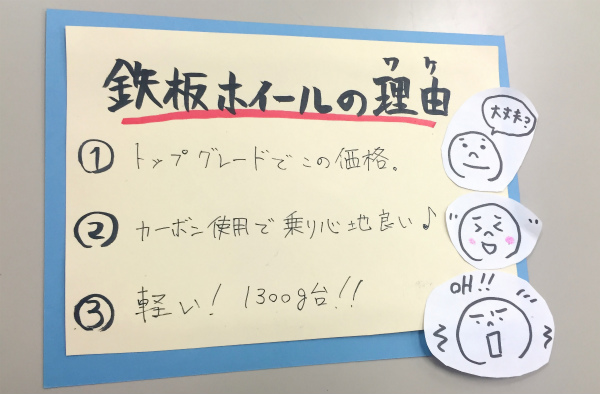 鉄板ホイールの理由
ワケ
大丈夫?
① トップグレードでこの価格。
② カーボン使用で乗り心地良い♪
OH!!
③ 軽い! 1300g台!!